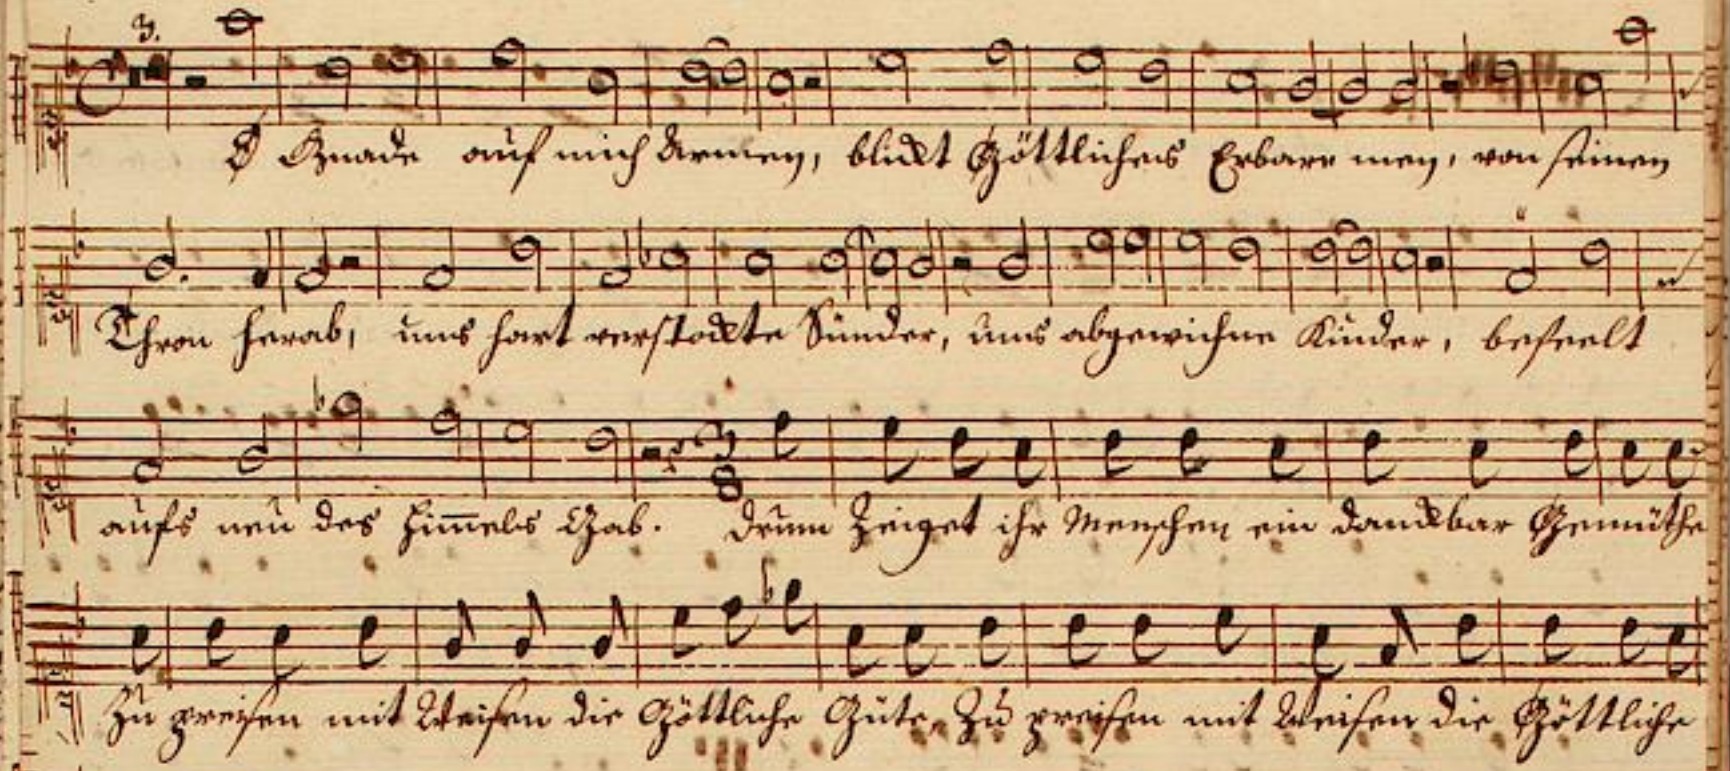 3.
O Gnade auf mich Armen, blickt Göttliches Erbarmen, von seinen
Thron herab, uns hart verstockte Sünder, uns abgewichne Kinder, beseelt
aufs neu des Him̅els Gab. Drum Zeiget ihr Menschen ein danckbar Gemüthe
Zu preisen mit Weisen die Göttliche Güte, Zu preisen mit Weisen die Göttliche